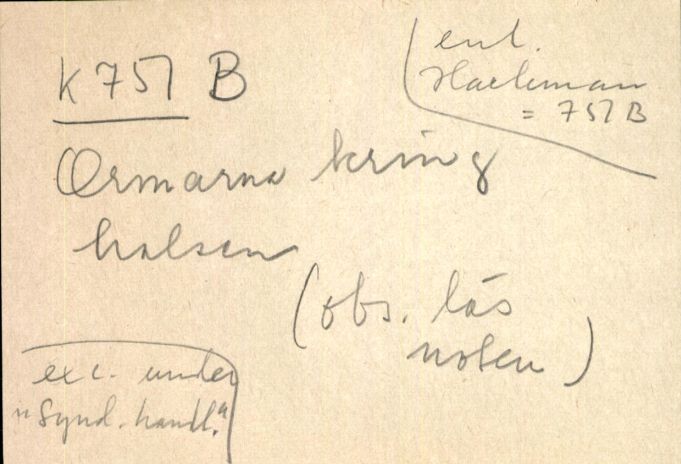 K 751 B
ent.
Hackman
= 751 B
Ormarna kring
halsen
(obs. läs
noten)
exc. under
"Synd. handl."